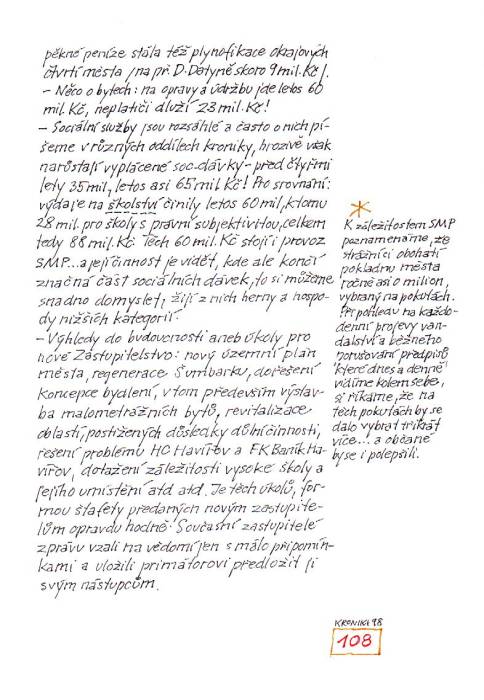 pěkné peníze stála též plynofikace okrajových
čtvrtí města /na př. D. Datyně skoro 9 mil. Kč/.
– Něco o bytech: na opravy a údržbu jde letos 60
mil. Kč, neplatiči dluží 23 mil. Kč!
– Sociální služby jsou rozsáhlé a často o nich pí-
šeme v různých oddílech kroniky, hrozivě však
narůstají vyplácené soc. dávky – před čtyřmi
lety 35 mil, letos asi 65 mil. Kč! Pro srovnání:
výdaje na školství činily letos 60 mil., k tomu
28 mil. pro školy s právní subjektivitou, celkem
tedy 88 mil. Kč. Těch 60 mil. Kč stojí i provoz
SMP... a její činnost je vidět, kde ale končí
značná část sociálních dávek, to si můžeme
snadno domyslet; žijí z nich herny a hospo-
dy nižších kategorií.
– Výhledy do budoucnosti aneb úkoly pro
nové Zastupitelstvo: nový územní plán
města, regenerace Šumbarku, dořešení
koncepce bydlení, v tom především výstav-
ba malometrážních bytů, revitalizace
oblastí, postižených důsledky důlní činnosti,
řešení problému HC Havířov a FK Baník Ha-
vířov, dotažení záležitosti vysoké školy a
jejího umístění atd. atd. Je těch úkolů, for-
mou štafety předaných novým zastupite-
lům opravdu hodně. Současní zastupitelé
zprávu vzali na vědomí jen s málo připomín-
kami a uložili primátorovi předložit ji
svým nástupcům.
*
K záležitostem SMP
poznamenáme, že
strážníci obohatí
pokladnu města
ročně asi o milion,
vybraný na pokutách.
Při pohledu na každo-
denní projevy van-
dalství a běžného
porušování předpisů
které dnes a denně
vidíme kolem sebe,
si říkáme, že na
těch pokutách by se
dalo vybrat třikrát
více... a občané
by se i polepšili.
KRONIKA 98
108